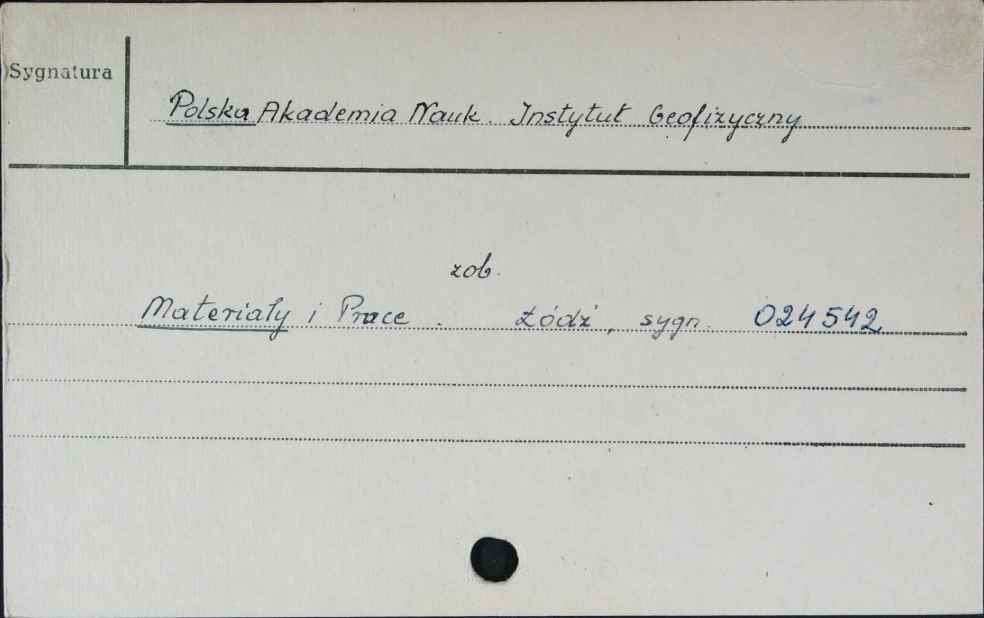 Sygnatura
Polska Akademia Nauk. Instytut Geofizyczny
zob.
Materiały i Prace. Łódź, sygn. 024542